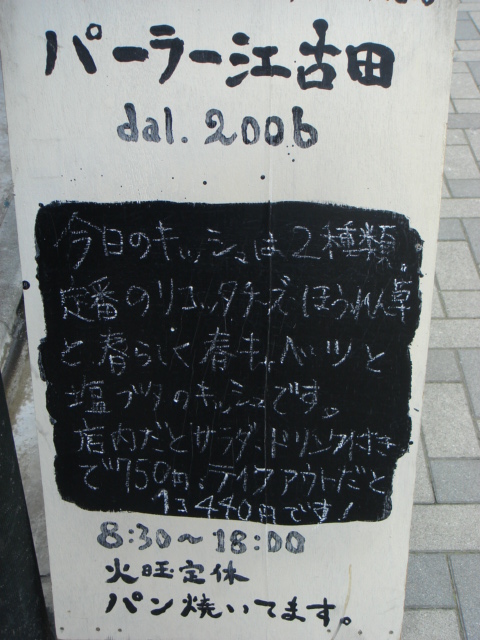 パーラー江古田
dal. 2006
今日のキッシュは2種類。
定番のリコッタチーズほうれん草
と春らしく春キャベツと
塩ブタのキッシュです。
店内だとサラダ、ドリンク付き
で750円、テイクアウトだと
1コ440円です!
8:30〜18:00
火曜定休
パン焼いてます。